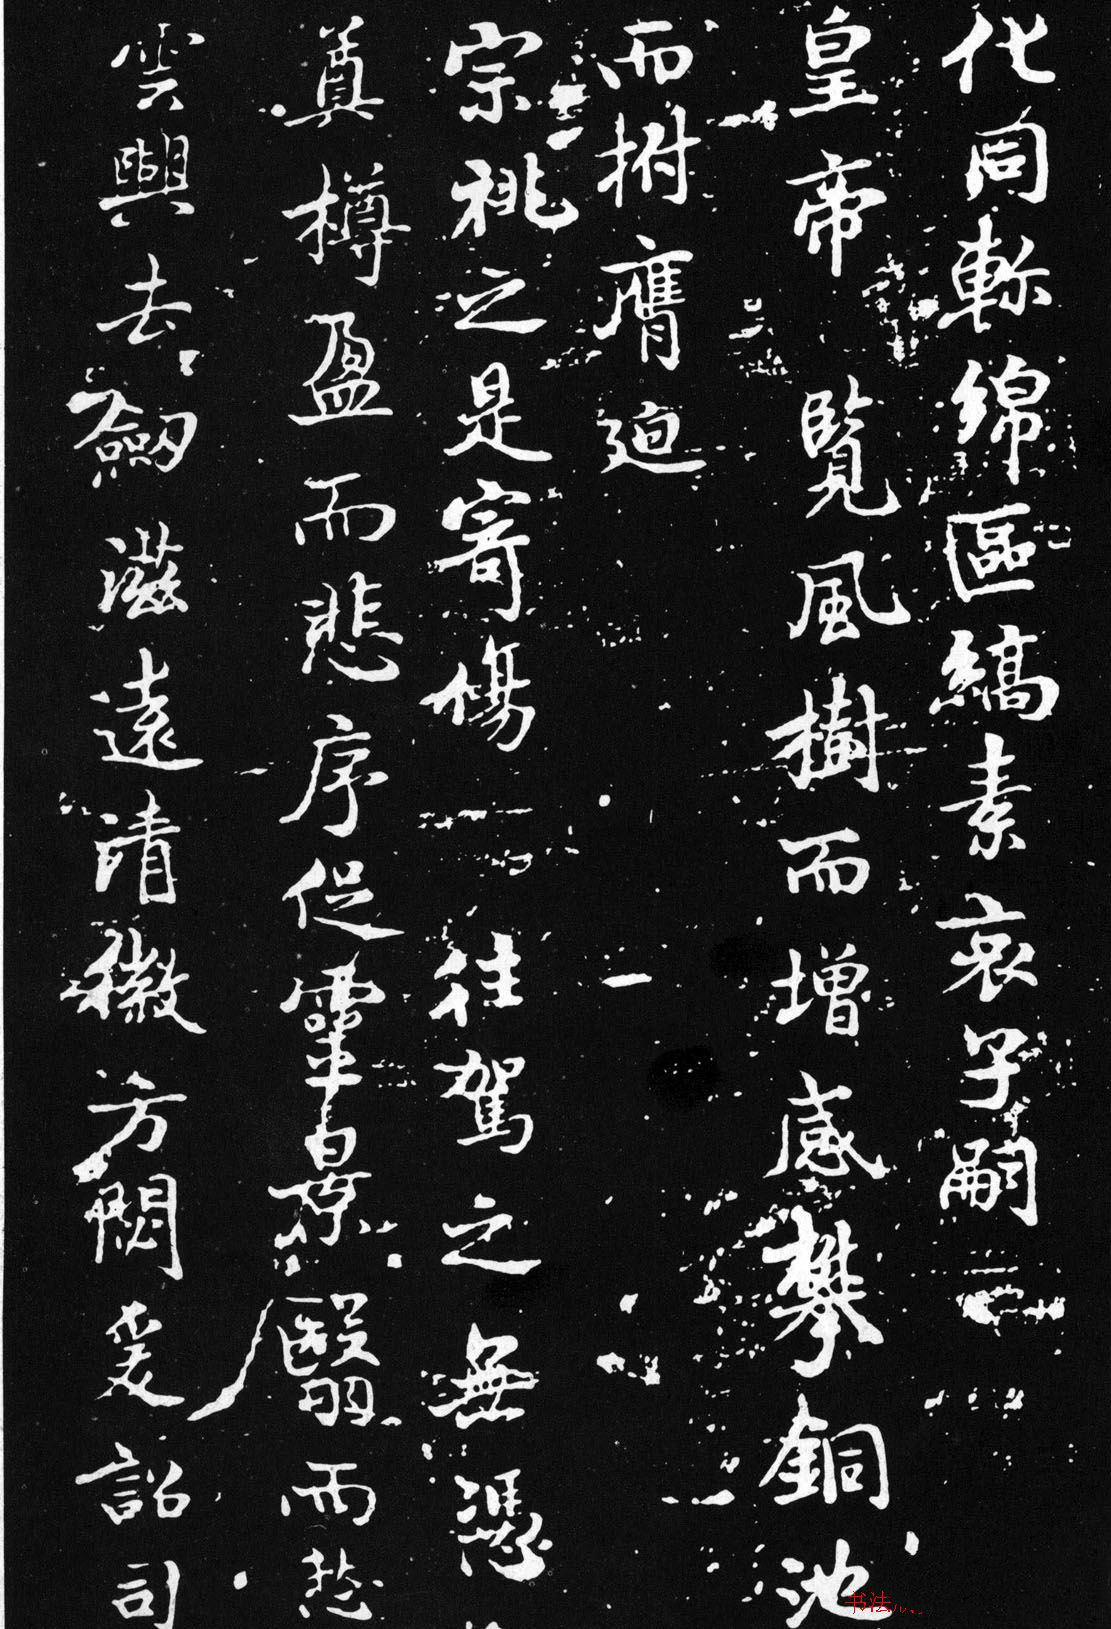 化同軫綿區縞素哀子嗣
皇帝覽風樹而增感攀銅池
而拊膺迫
宗祧之是寄傷一往駕之無憑
奠樽盈而悲序促靈景翳而愁
雲興去劒滋遠清徽方閟爰詔司
书法